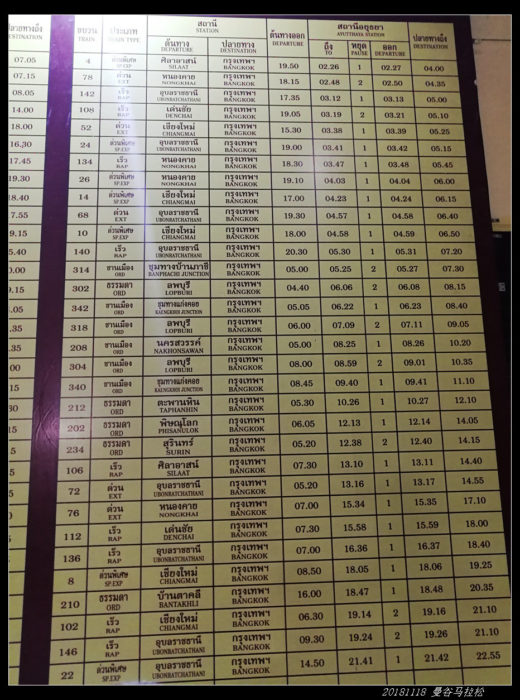 ขบวน ประเภท สถานี ต้นทางออก สถานีอยุธยา ปลายทางถึง
TRAIN TRAIN TYPE STATION DEPARTURE AYUTTHAYA STATION DESTINATION
ต้นทาง ปลายทาง ถึง หยุด ออก
DEPARTURE DESTINATION TO PAUSE DEPARTURE
ปลายทางถึง
DESTINATION
07.05
07.15
08.05
14.00
18.00
16.30
17.45
19.30
4 ด่วนพิเศษ ศิลาอาสน์ กรุงเทพฯ 19.50 02.26 1 02.27 04.00
SP.EXP SILAAT BANGKOK
78 ด่วน หนองคาย กรุงเทพฯ 18.15 02.48 2 02.50 04.35
EXT NONGKHAI BANGKOK
142 เร็ว อุบลราชธานี กรุงเทพฯ 17.35 03.12 1 03.13 05.00
RAP UBONRATCHATHANI BANGKOK
108 เร็ว เด่นชัย กรุงเทพฯ 19.05 03.19 2 03.21 05.10
RAP DENCHAI BANGKOK
52 ด่วน เชียงใหม่ กรุงเทพฯ 15.30 03.38 1 03.39 05.25
EXT CHIANGMAI BANGKOK
24 ด่วนพิเศษ อุบลราชธานี กรุงเทพฯ 19.00 03.41 1 03.42 05.15
SP.EXP UBONRATCHATHANI BANGKOK
134 เร็ว หนองคาย กรุงเทพฯ 18.30 03.47 1 03.48 05.45
RAP NONGKHAI BANGKOK
26 ด่วนพิเศษ หนองคาย กรุงเทพฯ 19.10 04.03 1 04.04 06.00
SP.EXP NONGKHAI BANGKOK
14 ด่วนพิเศษ เชียงใหม่ กรุงเทพฯ 17.00 04.23 1 04.24 06.15
SP.EXP CHIANGMAI BANGKOK
68 ด่วน อุบลราชธานี กรุงเทพฯ 19.30 04.57 1 04.58 06.40
EXT UBONRATCHATHANI BANGKOK
10 ด่วนพิเศษ เชียงใหม่ กรุงเทพฯ 18.00 04.58 1 04.59 06.50
SP.EXP CHIANGMAI BANGKOK
140 เร็ว อุบลราชธานี กรุงเทพฯ 20.30 05.30 1 05.31 07.20
RAP UBONRATCHATHANI BANGKOK
314 ชานเมือง ชุมทางบ้านภาชี กรุงเทพฯ 05.00 05.25 2 05.27 07.30
ORD BANPHACHI JUNCTION BANGKOK
302 ธรรมดา ลพบุรี กรุงเทพฯ 04.40 06.06 2 06.08 08.15
ORD LOPBURI BANGKOK
342 ชานเมือง ชุมทางแก่งคอย กรุงเทพฯ 05.05 06.22 1 06.23 08.40
ORD KAENGKHOI JUNCTION BANGKOK
318 ชานเมือง ลพบุรี กรุงเทพฯ 06.00 07.09 2 07.11 09.05
ORD LOPBURI BANGKOK
208 ชานเมือง นครสวรรค์ กรุงเทพฯ 05.00 08.25 1 08.26 10.20
ORD NAKHONSAWAN BANGKOK
304 ชานเมือง ลพบุรี กรุงเทพฯ 08.00 08.59 2 09.01 10.35
ORD LOPBURI BANGKOK
340 ชานเมือง ชุมทางแก่งคอย กรุงเทพฯ 08.45 09.40 1 09.41 11.10
ORD KAENGKHOI JUNCTION BANGKOK
212 ธรรมดา ตะพานหิน กรุงเทพฯ 05.30 10.26 1 10.27 12.10
ORD TAPHANHIN BANGKOK
202 ธรรมดา พิษณุโลก กรุงเทพฯ 06.05 12.13 1 12.14 14.05
ORD PHISANULOK BANGKOK
234 ธรรมดา สุรินทร์ กรุงเทพฯ 05.20 12.38 2 12.40 14.15
ORD SURIN BANGKOK
106 เร็ว ศิลาอาสน์ กรุงเทพฯ 07.30 13.10 1 13.11 14.40
RAP SILAAT BANGKOK
72 ด่วน อุบลราชธานี กรุงเทพฯ 05.20 13.16 1 13.17 14.55
EXT UBONRATCHATHANI BANGKOK
76 ด่วน หนองคาย กรุงเทพฯ 07.00 15.34 1 15.35 17.10
EXT NONGKHAI BANGKOK
112 เร็ว เด่นชัย กรุงเทพฯ 07.30 15.58 1 15.59 18.00
RAP DENCHAI BANGKOK
136 เร็ว อุบลราชธานี กรุงเทพฯ 07.00 16.36 1 16.37 18.40
RAP UBONRATCHATHANI BANGKOK
8 ด่วนพิเศษ เชียงใหม่ กรุงเทพฯ 08.50 18.05 1 18.06 19.25
SP.EXP CHIANGMAI BANGKOK
210 ธรรมดา บ้านตาคลี กรุงเทพฯ 16.00 18.47 1 18.48 20.35
ORD BANTAKHLI BANGKOK
102 เร็ว เชียงใหม่ กรุงเทพฯ 06.30 19.14 2 19.16 21.10
RAP CHIANGMAI BANGKOK
146 เร็ว อุบลราชธานี กรุงเทพฯ 09.30 19.24 2 19.26 21.10
RAP UBONRATCHATHANI BANGKOK
22 ด่วนพิเศษ อุบลราชธานี กรุงเทพฯ 14.50 21.41 1 21.42 22.55
SP.EXP UBONRATCHATHANI BANGKOK
20181118 曼谷马拉松